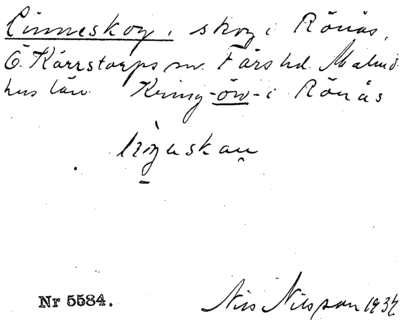 Linneskog, skog i Rönås,
Ö. Kärrstorps sn. Färs hd. Malmö-
hus län Kring-öw-i Rönås
Nr 5584.
Nils Nilsson 1932